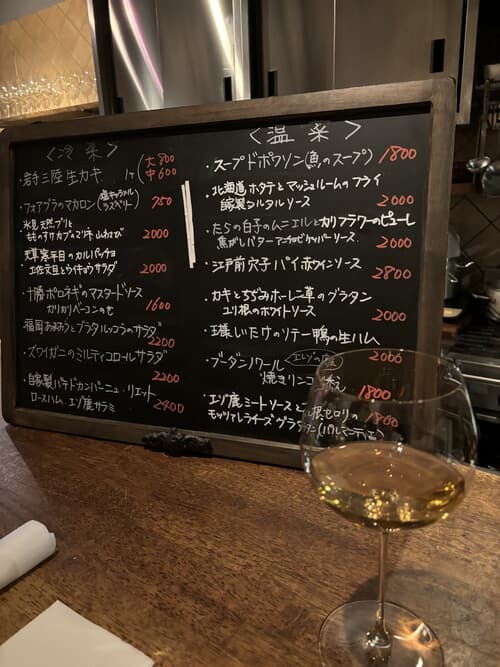 ＜冷菜＞
・岩手三陸 生カキ 1ケ(大800
中600
・フォアグラのマカロン(塩キャラメル
ラズベリー) 750
氷見天然ブリと
もものすけカブのマリネ 山わさび 2000
天草 客平目のカルパッチョ
土佐文旦とウイキョウサラダ 2000
・十勝ポロネギのマスタードソース
カリカリベーコンのせ 1600
・福岡あまおうとブラタ ルッコラのサラダ
2200
・ズワイガニのミルティコロールサラダ
2200
・自家製パテドカンパーニュ・リエット
ロースハム、エゾ鹿サラミ 2400
＜温菜＞
・スープドポワソン(魚のスープ) 1800
・北海道ホタテとマッシュルームのフライ
自家製タルタルソース 2000
・たらの白子のムニエルとカリフラワーのピューレ
焦がしバターアンチョビケッパーソース 2000
・江戸前穴子パイ 赤ワインソース
2800
・カキとちぢみホーレン草のグラタン
ユリ根のホワイトソース 2000
・王様しいたけのソテー 鴨の生ハム
2000
・ブーダンノワール(エゾ鹿の血)
焼きリンゴ添え 1800
・エゾ鹿ミートソースと根セロリの 1800
モッツァレラチーズグラタン(パルマンティエ)